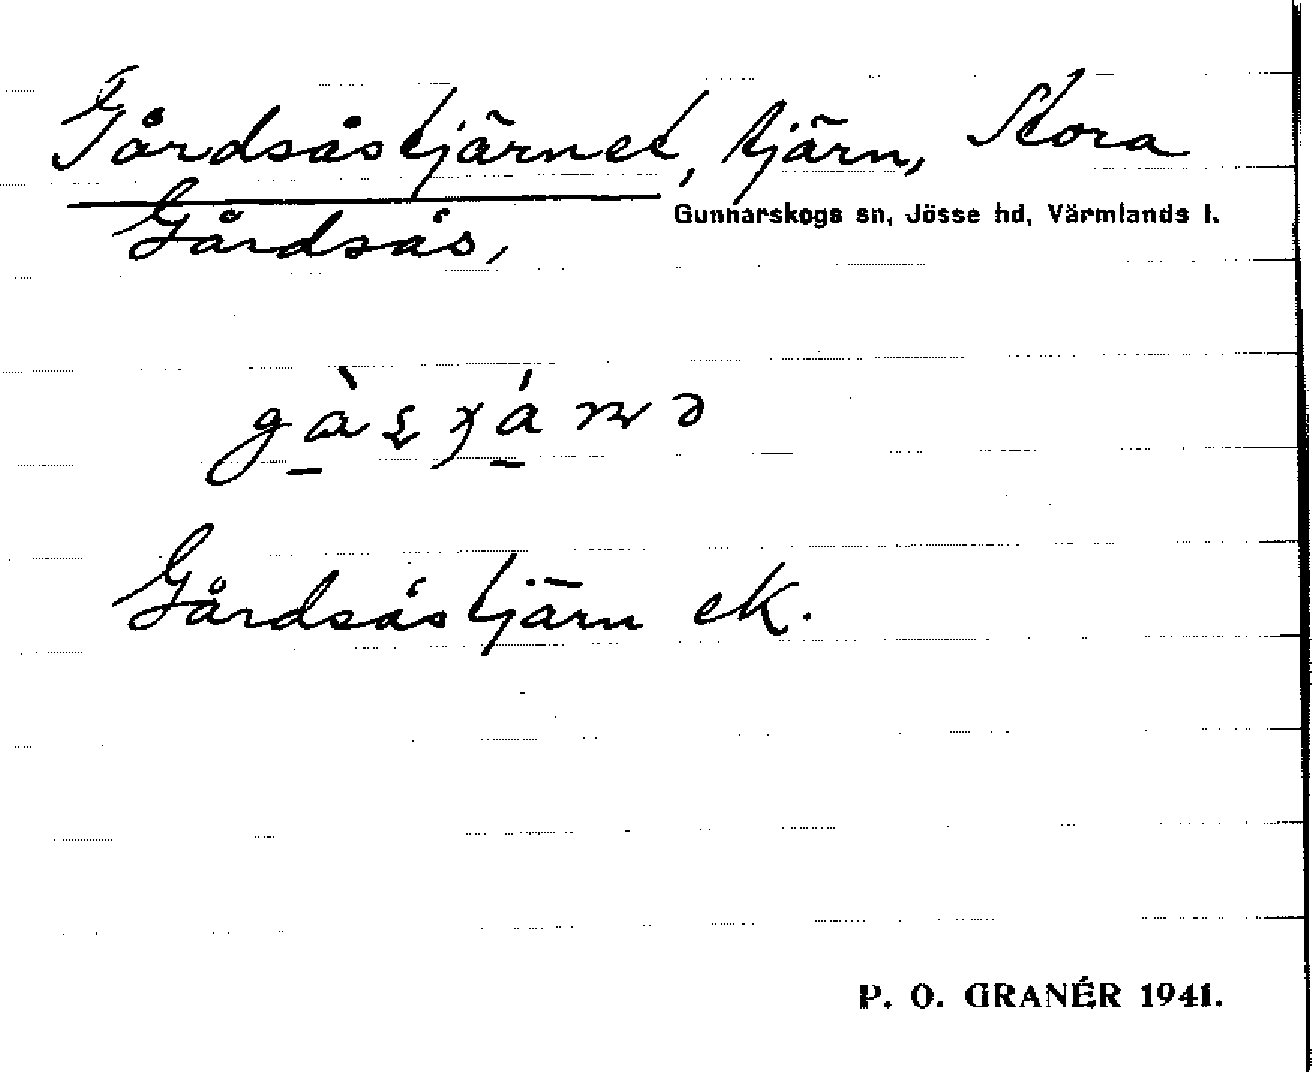 Gårdsåstjärnet, tjärn, Stora
Gårdsås,
Gunnarskogs sn, Jösse hd, Värmlands l.
Gårdsåstjärn ek.
P. O. GRANÉR 1941.